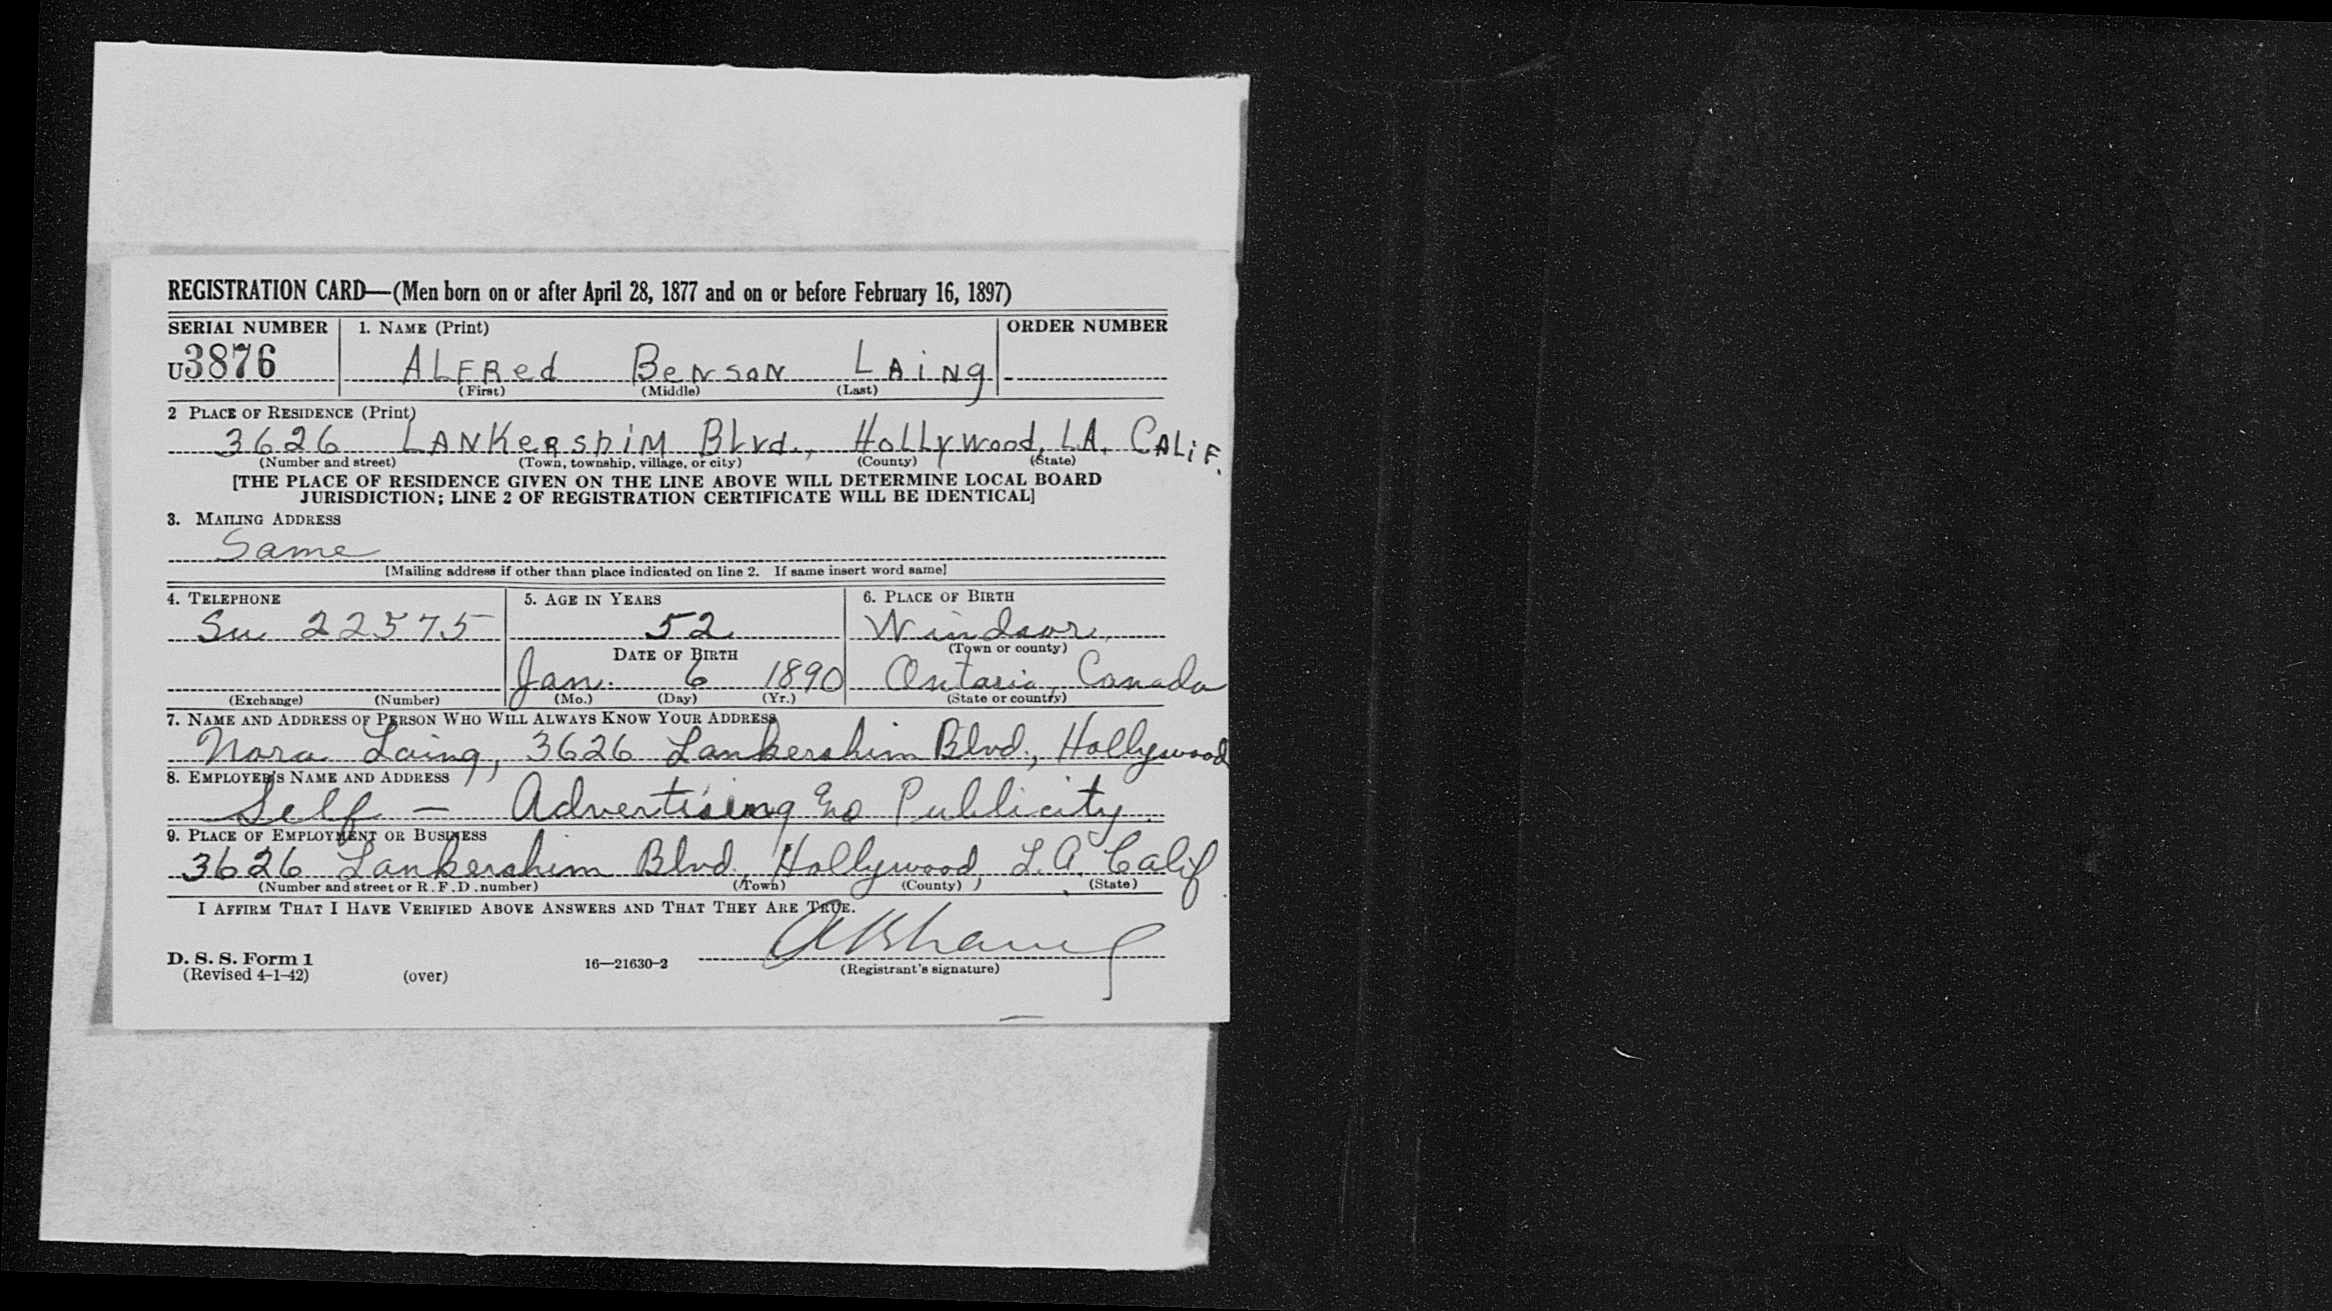 REGISTRATION CARD—(Men born on or after April 28, 1877 and on or before February 16, 1897)
SERIAL NUMBER 1. NAME (Print) ORDER NUMBER
U3876 ALFRed BeNsoN LAiNg
(First) (Middle) (Last)
2 PLACE OF RESIDENCE (Print)
3626 LANKeRshiM BLvd., HoLLywood, LA. CALiF.
(Number and street) (Town, township, village, or city) (County) (State)
[THE PLACE OF RESIDENCE GIVEN ON THE LINE ABOVE WILL DETERMINE LOCAL BOARD
JURISDICTION; LINE 2 OF REGISTRATION CERTIFICATE WILL BE IDENTICAL]
3. MAILING ADDRESS
Same
[Mailing address if other than place indicated on line 2. If same insert word same]
4. TELEPHONE 5. AGE IN YEARS 6. PLACE OF BIRTH
Su 22575 52 Windsor,
DATE OF BIRTH (Town or county)
Jan. 6 1890 Ontario, Canada
(Exchange) (Number) (Mo.) (Day) (Yr.) (State or country)
7. NAME AND ADDRESS OF PERSON WHO WILL ALWAYS KNOW YOUR ADDRESS
Nora Laing, 3626 Lankershim Blvd., Hollywood
8. EMPLOYER'S NAME AND ADDRESS
Self — Advertising Publicity
9. PLACE OF EMPLOYMENT OR BUSINESS
3626 Lankershim Blvd., Hollywood, L.A. Calif
(Number and street or R.F.D. number) (Town) (County) (State)
I AFFIRM THAT I HAVE VERIFIED ABOVE ANSWERS AND THAT THEY ARE TRUE.
D. S. S. Form 1
(Revised 4-1-42) (over) 16—21630-2 (Registrant's signature)